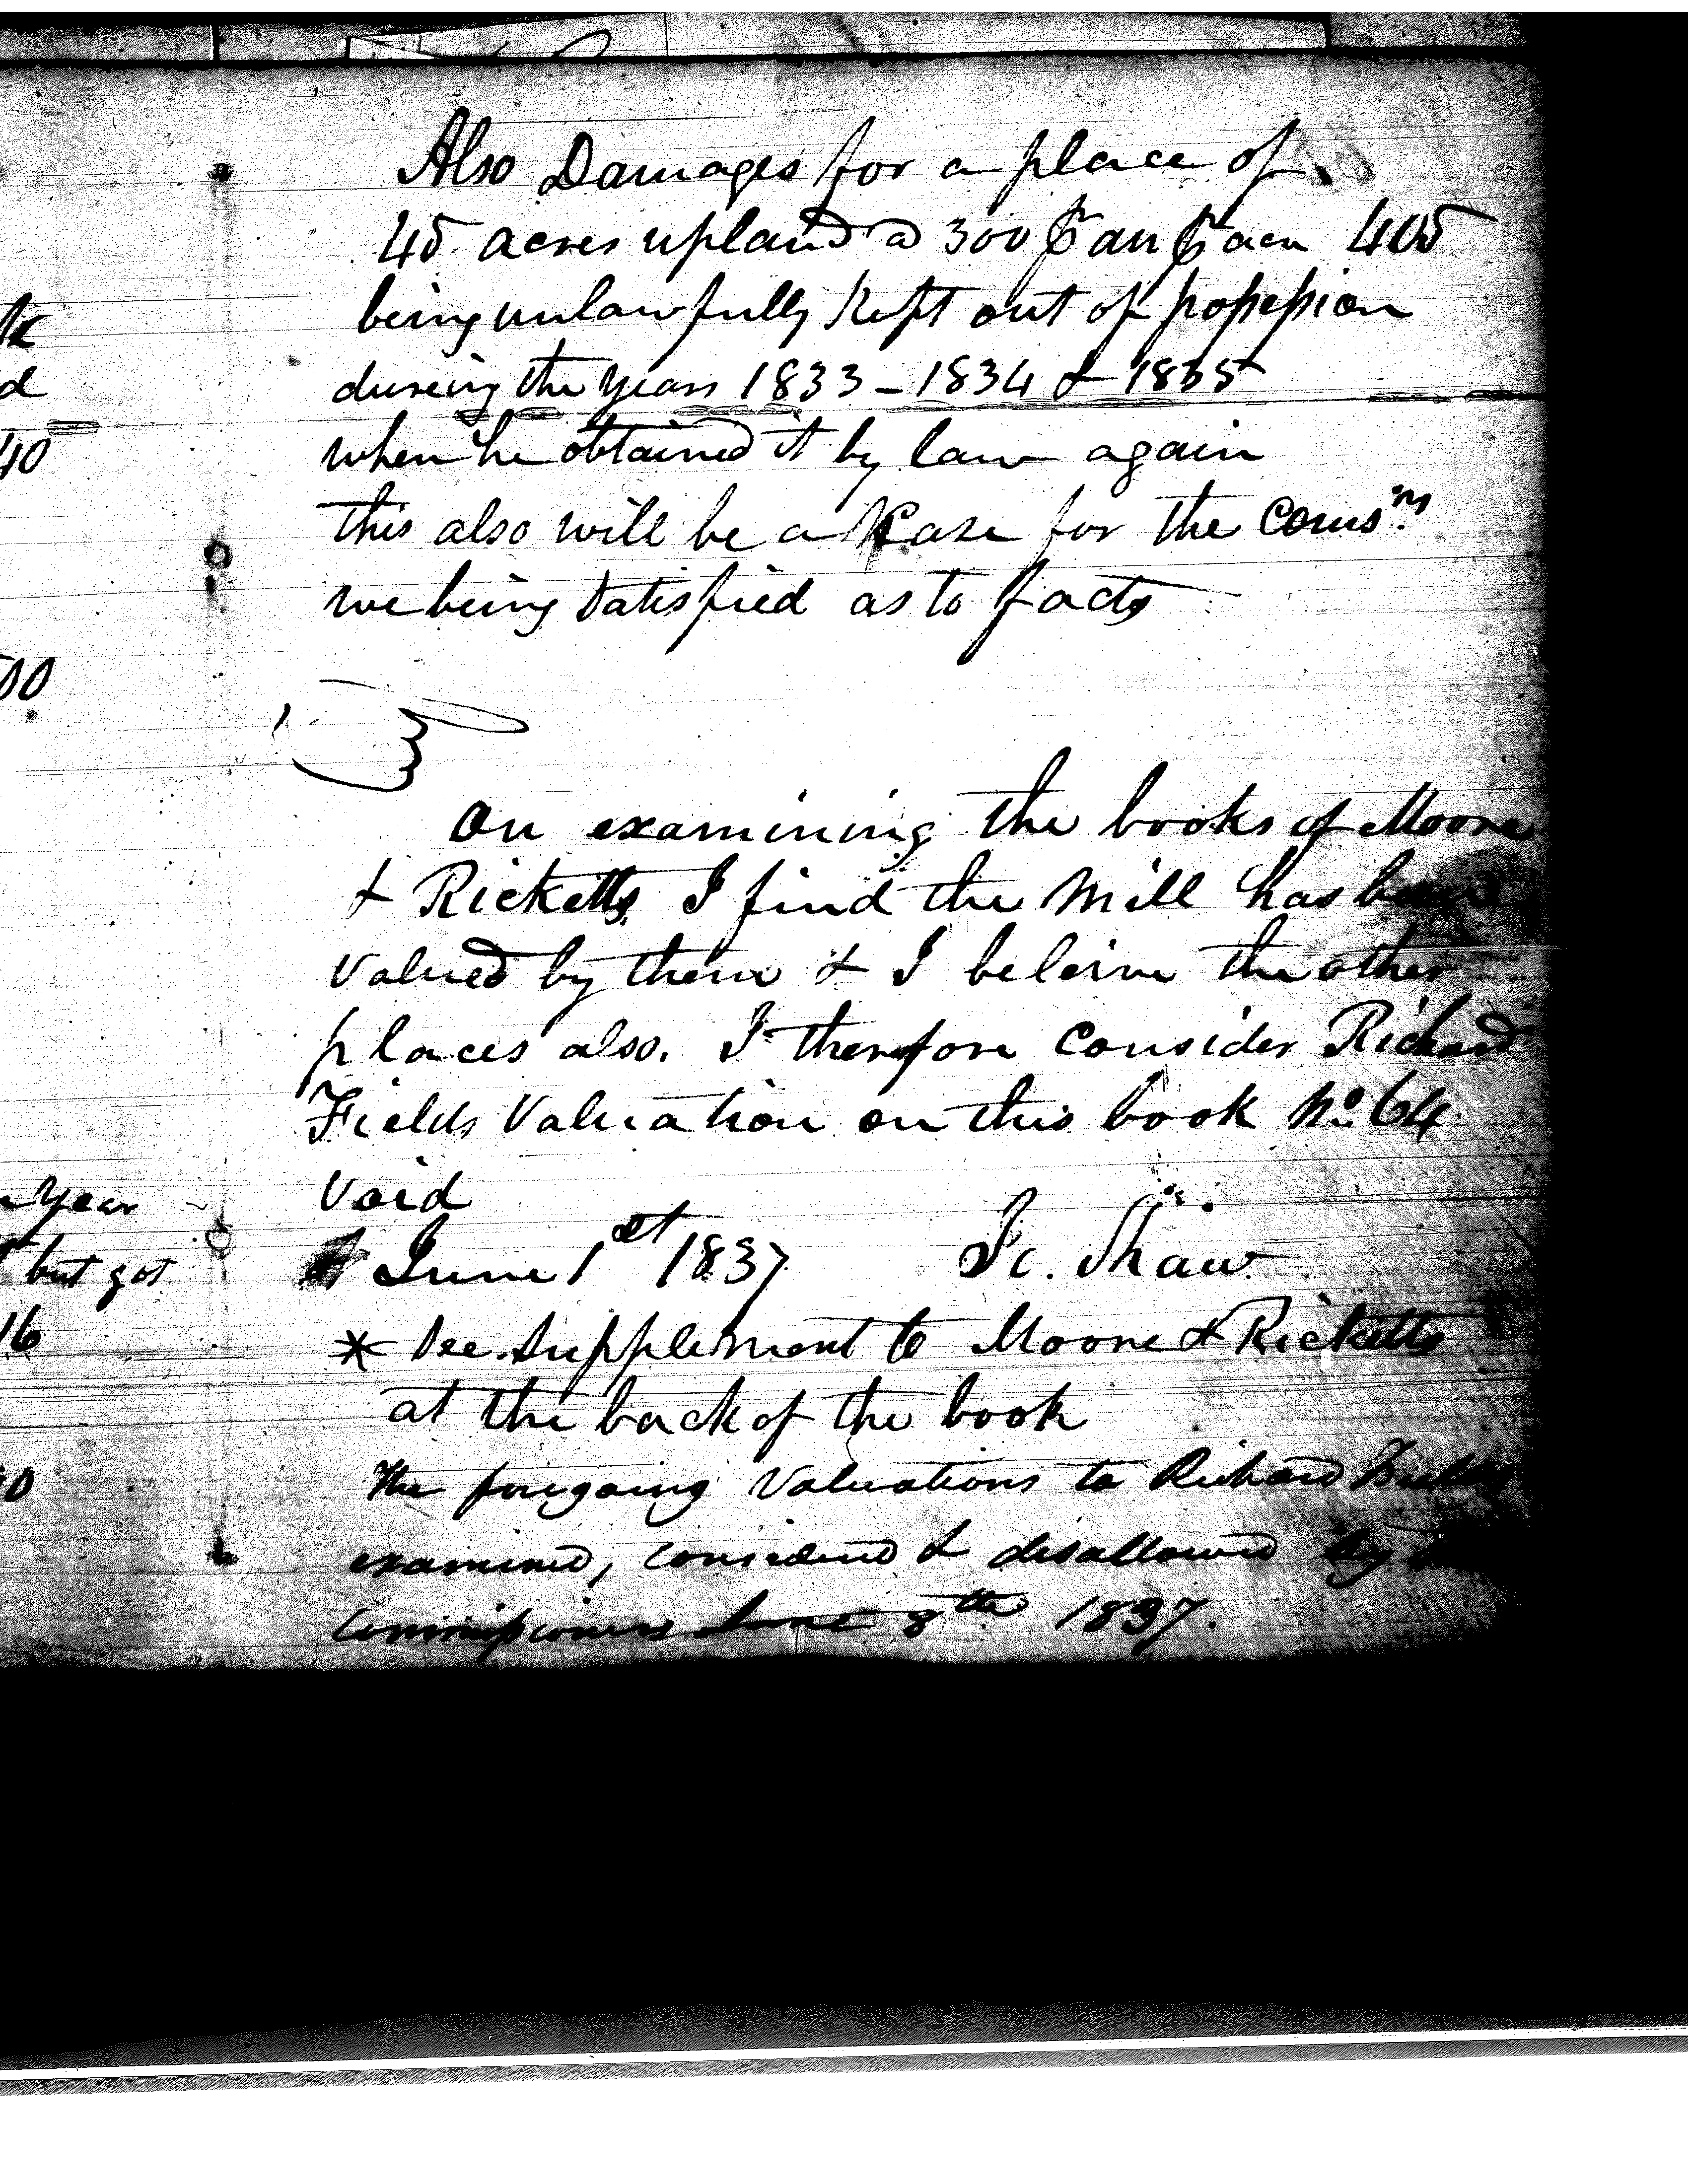 Also Damages for a place of
45 acres upland @ 300 pr an pr acre 405
being unlawfully kept out of possession
dureing the years 1833 - 1834 & 1835
when he obtained it by law again
this also will be a Case for the Comsrs
we being satisfied as to facts
On examining the books of Moore
& Ricketts I find the Mill has been
valued by them & I beleive the other
places also. I therefore Consider Richard
Fields Valuation on this book No. 64
Void
June 1st 1837 Jc. Shaw
* See Supplement to Moore & Ricketts
at the back of the book
The foregoing Valuations to Richard Fields
examined, considered & disallowed by
Commissioners June 8th 1837.
k
d
40
00
Year
but got
16
0